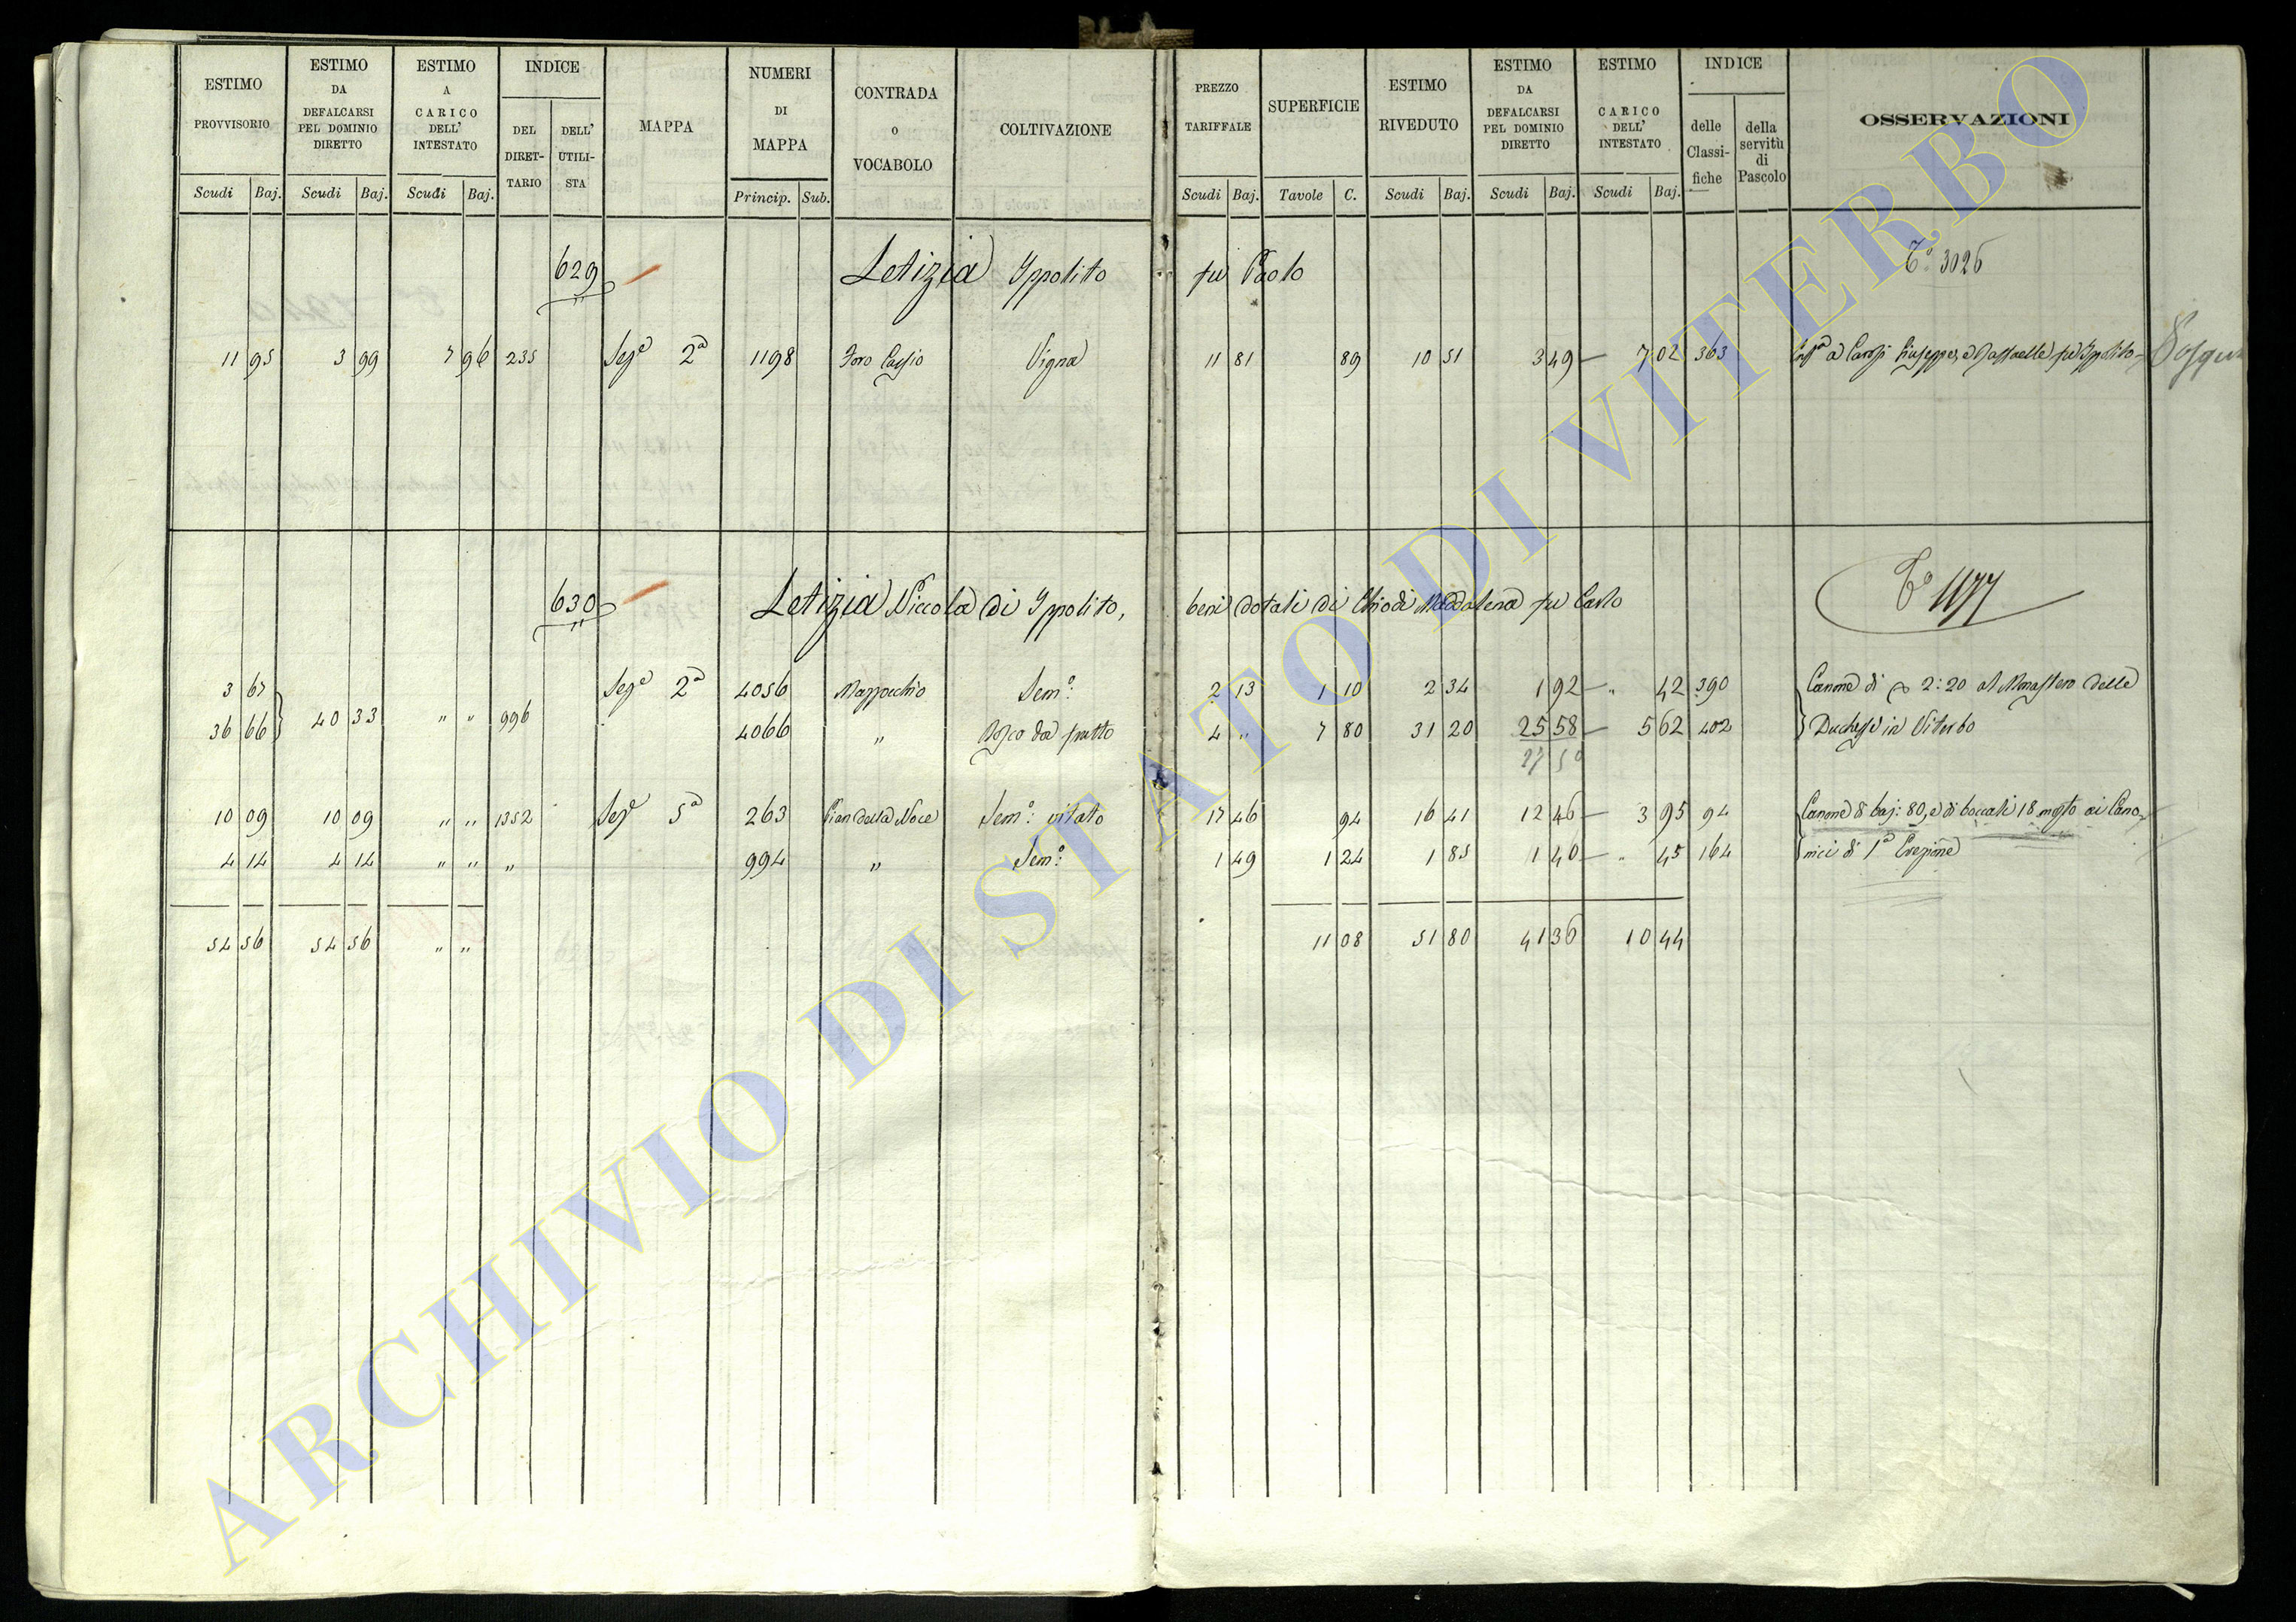 ESTIMO PROVVISORIO
Scudi Baj.
ESTIMO DA DEFALCARSI PEL DOMINIO DIRETTO
Scudi Baj.
ESTIMO A CARICO DELL' INTESTATO
Scudi Baj.
INDICE
DEL DIRET-TARIO
DELL' UTILI-STA
MAPPA
NUMERI DI MAPPA
Princip. Sub.
CONTRADA O VOCABOLO
COLTIVAZIONE
PREZZO TARIFFALE
Scudi Baj.
SUPERFICIE
Tavole C.
ESTIMO RIVEDUTO
Scudi Baj.
ESTIMO DA DEFALCARSI PEL DOMINIO DIRETTO
Scudi Baj.
ESTIMO CARICO DELL' INTESTATO
Scudi Baj.
INDICE
delle Classi-fiche
della servitù di Pascolo
OSSERVAZIONI
629 Letizia Ippolito fu Paolo 3026
11 95 3 99 7 96 235 Seze 2a 1198 Foro Cassio Vigna 11 81 89 10 51 3 49 — 7 02 363 Giuseppe, e Raffaelle fu Ippolito
630 Letizia Niccola di Ippolito, beni dotali di Chiodi Maddalena fu Carlo 1177
3 67 Seze 2a 4056 Mazzocchio Sem: 2 13 1 10 2 34 1 92 — " 42 390 Canone di 2:20 al Monastero delle
36 66 40 33 " " 996 4066 " Bosco da frutto 4 " 7 80 31 20 25 58 — 5 62 402 Duchesse in Viterbo
27 50
10 09 10 09 " " 1352 Seze 5a 263 Pian della Noce Sem: vitato 17 46 94 16 41 12 46 — 3 95 94 Canone di baj: 80, e di boccali 18 mosto ai Cano-
4 14 4 14 " " " 994 " Sem: 1 49 1 24 1 85 1 40 — " 45 164 nici di 1a Erezione
54 56 54 56 " " 11 08 51 80 41 36 10 44
ARCHIVIO DI STATO DI VITERBO